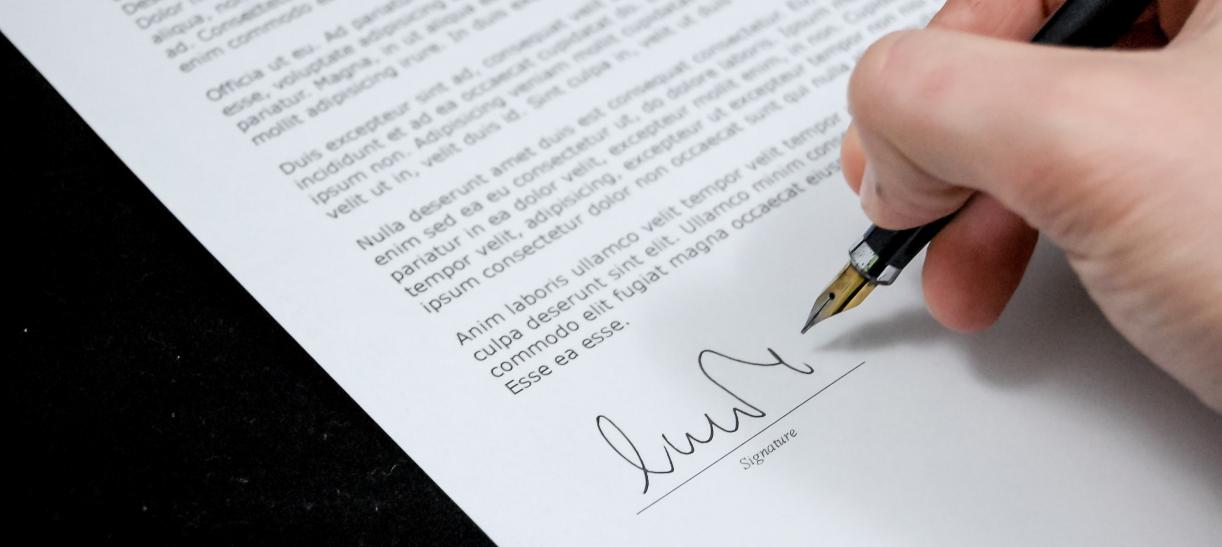 Dolor
aliqua, no
ad. Consectet
enim commodo e
Officia ut eu. Ad pariatur
esse, voluptate adipisicing
pariatur. Magna, in ut aliqua
mollit adipisicing irure. In duis
Duis excepteur sint ad, consequat velit
incididunt et ad ea occaecat cupidatat do.
ipsum non. Adipisicing veniam mollit cupidatat
velit ut in, velit duis id. Sint culpa in, velit ut duis
Nulla deserunt amet duis est consequat consectetur.
enim sed ea eu consectetur ut, do dolore laboris. Ipsum
pariatur in ea dolor velit, excepteur mollit enim, in non.
tempor velit, adipisicing, excepteur ut excepteur tempor
ipsum consectetur dolor non occaecat sunt qui nulla
Anim laboris ullamco velit tempor velit tempor
culpa deserunt sint elit. Ullamco minim con
commodo elit fugiat magna occaecat eius
Esse ea esse.
Signature